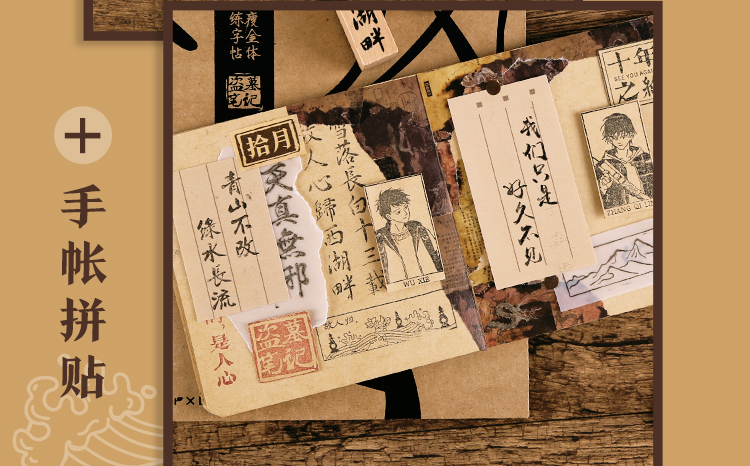 手帐拼贴
瘦金体
练字帖
盗墓
笔记
湖畔
十年
SEE YOU AGAIN
之約
拾月
青山不改
綠水長流
更真無邪
雪落長白十三載
故人心歸西湖畔
我们只是
好久不见
WU XIE
ZHANG QI LIN
故人归
盗墓
笔记
是人心